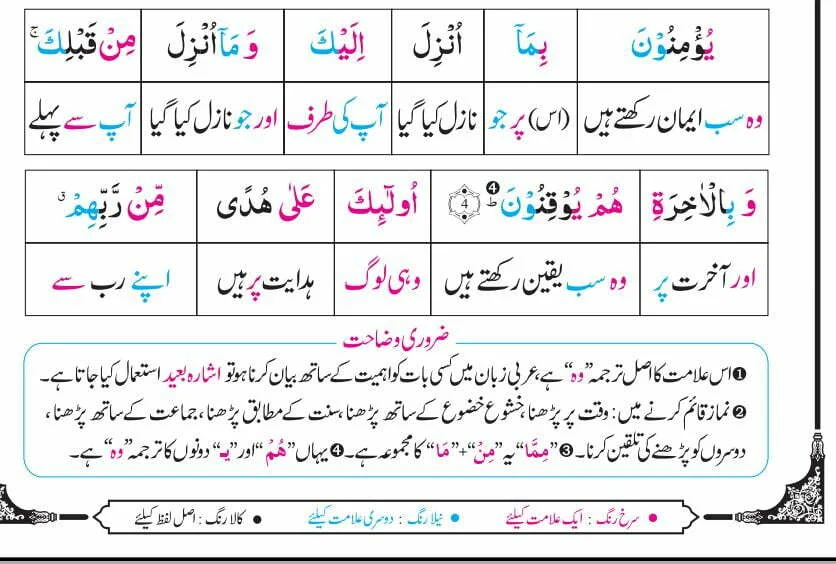 يُؤْمِنُوْنَ بِمَآ اُنْزِلَ اِلَيْكَ وَ مَآ اُنْزِلَ مِنْ قَبْلِكَ ۚ
وہ سب ایمان رکھتے ہیں (اس) پر جو نازل کیا گیا آپ کی طرف اور جو نازل کیا گیا آپ سے پہلے
وَ بِالْاٰخِرَةِ هُمْ يُوْقِنُوْنَ ❹ ؕ 4 اُولٰٓئِكَ عَلٰى هُدًى مِّنْ رَّبِّهِمْ ۗ
اور آخرت پر وہ سب یقین رکھتے ہیں وہی لوگ ہدایت پر ہیں اپنے رب سے
ضروری وضاحت
❶ اس علامت کا اصل ترجمہ "وہ" ہے، عربی زبان میں کسی بات کو اہمیت کے ساتھ بیان کرنا ہو تو اشارہ بعید استعمال کیا جاتا ہے۔
❷ نماز قائم کرنے میں: وقت پر پڑھنا، خشوع خضوع کے ساتھ پڑھنا، سنت کے مطابق پڑھنا، جماعت کے ساتھ پڑھنا،
دوسروں کو پڑھنے کی تلقین کرنا۔ ❸ "مِمَّا" یہ "مِنْ" + "مَا" کا مجموعہ ہے۔ ❹ یہاں "هُمْ" اور "یـ" دونوں کا ترجمہ "وہ" ہے۔
• سرخ رنگ : ایک علامت کیلئے • نیلا رنگ : دوسری علامت کیلئے • کالا رنگ : اصل لفظ کیلئے